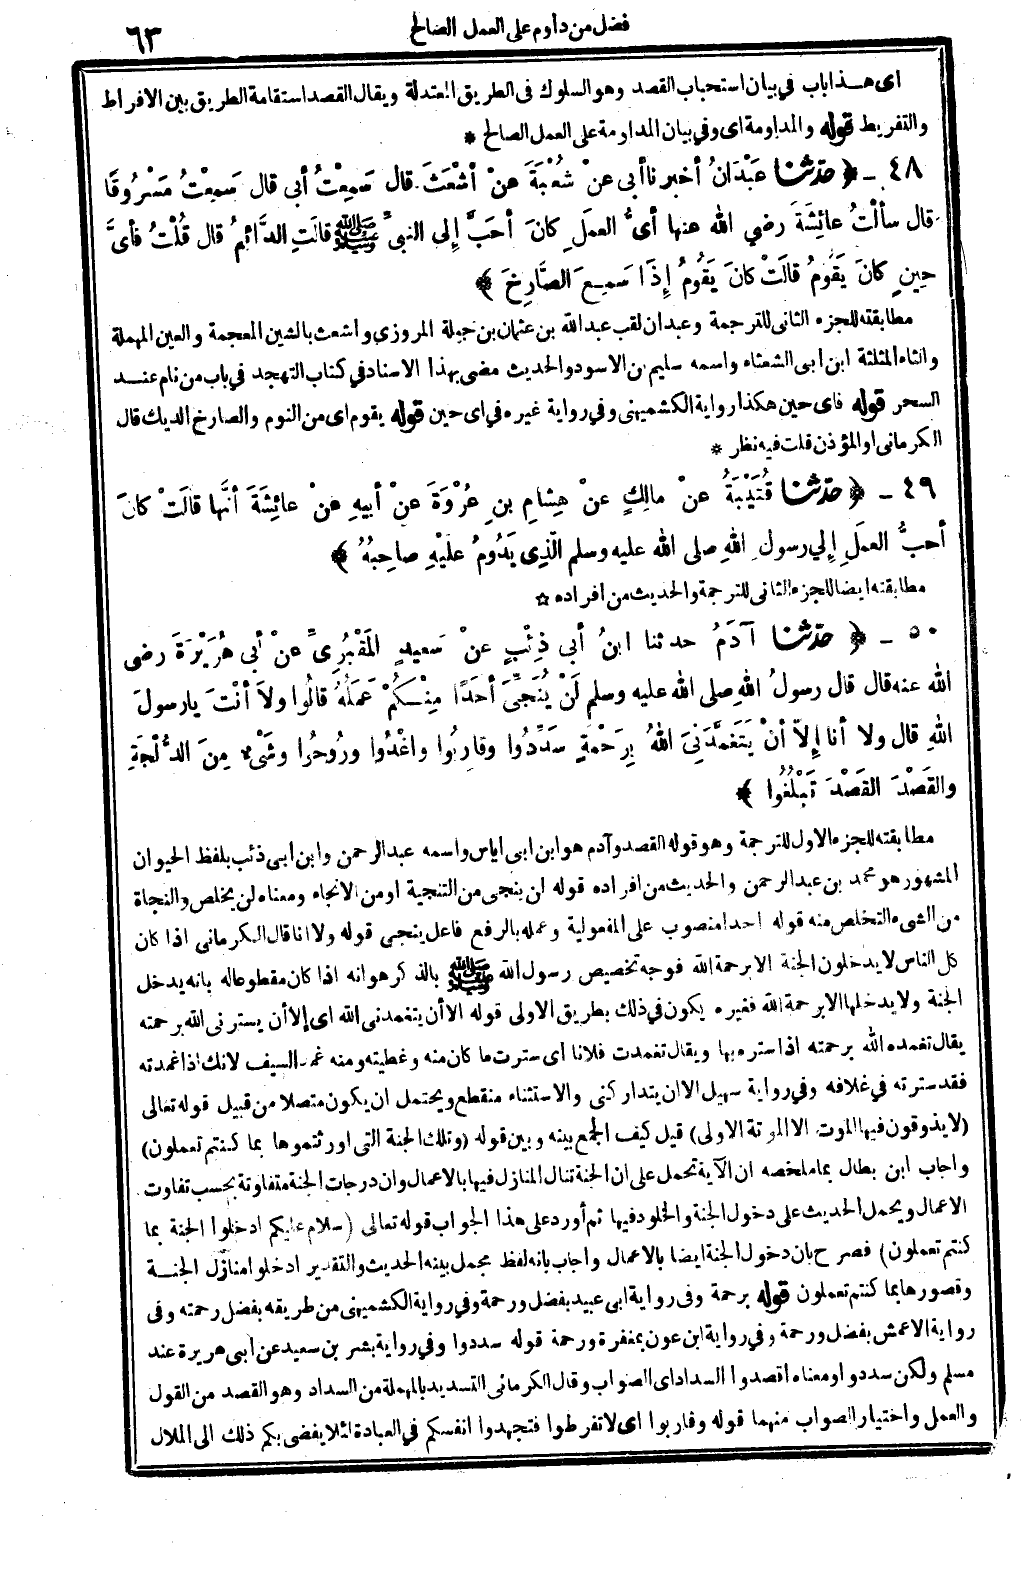 فضل من داوم على العمل الصالح
٦٣
اى هذا باب في بيان استحباب القصد وهو السلوك فى الطريق المعتدلة ويقال القصد استقامة الطريق بين الافراط
والتفريط قوله والمداومة اى وفي بيان المداومة على العمل الصالح *
٤٨ ـ ﴿ حدثنا عَبْدَانُ أخبرنا أبى عنْ شُعْبَةَ عنْ أشْعَثَ قال سَمِعْتُ أبى قال سَمِعْتُ مَسْرُوقًا
قال سألْتُ عائِشَةَ رضي الله عنها أىُّ العملِ كانَ أحَبَّ إلى النبىِّ ﷺ قالَتِ الدَّائِمُ قال قُلْتُ فأىَّ
حِينٍ كانَ يَقُومُ قالَتْ كانَ يَقُومُ إذَا سَمِعَ الصَّارِخَ ﴾
مطابقته للجزء الثانى للترجمة وعبدان لقب عبد الله بن عثمان بن جبلة المروزي واشعث بالشين المعجمة والعين المهملة
والثاء المثلثة ابن ابى الشعثاء واسمه سليم بن الاسود والحديث مضى بهذا الاسناد في كتاب التهجد في باب من نام عند
السحر قوله فاى حين هكذا رواية الكشميهنى وفي رواية غيره في اى حين قوله يقوم اى من النوم والصارخ الديك قال
الكرمانى او المؤذن قلت فيه نظر *
٤٩ ـ ﴿ حدثنا قُتَيْبَةُ عنْ مالِكٍ عنْ هِشامِ بنِ عُرْوَةَ عنْ أبيهِ عنْ عائِشَةَ أنَّها قالَتْ كانَ
أحبُّ العملِ إلى رسولِ اللهِ صلى الله عليه وسلم الَّذِى يَدُومُ عليْهِ صاحِبُهُ ﴾
مطابقته ايضا للجزء الثانى للترجمة والحديث من افراده ☆
٥٠ ـ ﴿ حدثنا آدَمُ حدثنا ابنُ أبى ذِئْبٍ عنْ سَعيدٍ المَقْبُرِىِّ عنْ أبى هُرَيْرَةَ رضى
الله عنه قال قال رسولُ اللهِ صلى الله عليه وسلم لَنْ يُنَجِّىَ أحَدًا مِنْكُمْ عَمَلُهُ قالُوا ولاَ أنْتَ يارسولَ
اللهِ قال ولا أنا إلاّ أنْ يَتَغَمَّدَنِىَ اللهُ بِرَحْمَةٍ سَدِّدُوا وقارِبُوا واغْدُوا ورُوحُوا وشَىْءٌ مِنَ الدُّلْجَةِ
والقَصْدَ القَصْدَ تَبْلُغُوا ﴾
مطابقته للجزء الاول للترجمة وهو قوله القصد وآدم هو ابن ابى اياس واسمه عبد الرحمن وابن ابى ذئب بلفظ الحيوان
المشهور هو محمد بن عبد الرحمن والحديث من افراده قوله ان ينجى من التنجية او من الانجاء ومعناه لن يخلص والنجاة
من الشىء التخلص منه قوله احدا منصوب على المفعولية وعمله بالرفع فاعل ينجى قوله ولا انا قال الكرمانى اذا كان
كل الناس لا يدخلون الجنة الا برحمة الله فوجه تخصيص رسول الله ﷺ بالذكر هو انه اذا كان مقطوعا له بانه يدخل
الجنة ولا يدخلها الا برحمة الله فغيره يكون في ذلك بطريق الاولى قوله الا أن يتغمدنى الله اى إلا أن يسترنى الله برحمته
يقال تغمده الله برحمته اذا ستره بها ويقال تغمدت فلانا اى سترت ما كان منه وغطيته ومنه غمد السيف لانك اذا غمدته
فقد سترته في غلافه وفي رواية سهيل الا ان يتداركنى والاستثناء منقطع ويحتمل ان يكون متصلا من قبيل قوله تعالى
(لا يذوقون فيها الموت الا الموتة الاولى) قيل كيف الجمع بينه وبين قوله (وتلك الجنة التى اورثتموها بما كنتم تعملون)
واجاب ابن بطال بما ملخصه ان الآية تحمل على ان الجنة تنال المنازل فيها بالاعمال وان درجات الجنة متفاوتة بحسب تفاوت
الاعمال ويحمل الحديث على دخول الجنة والخلود فيها ثم أورد على هذا الجواب قوله تعالى (سلام عليكم ادخلوا الجنة بما
كنتم تعملون) فصرح بان دخول الجنة ايضا بالاعمال واجاب بانه لفظ مجمل بينه الحديث والتقدير ادخلوا منازل الجنة
وقصورها بما كنتم تعملون قوله برحمة وفى رواية ابى عبيد بفضل ورحمة وفي رواية الكشميهنى من طريقه بفضل رحمته وفى
رواية الاعمش بفضل ورحمة وفي رواية ابن عون بمغفرة ورحمة قوله سددوا وفي رواية بشر بن سعيد عن ابى هريرة عند
مسلم ولكن سددوا ومعناه اقصدوا السداد اى الصواب وقال الكرمانى التسديد بالمهملة من السداد وهو القصد من القول
والعمل واختيار الصواب منهما قوله وقاربوا اى لا تفرطوا فتجهدوا انفسكم في العبادة لئلا يفضى بكم ذلك الى الملال